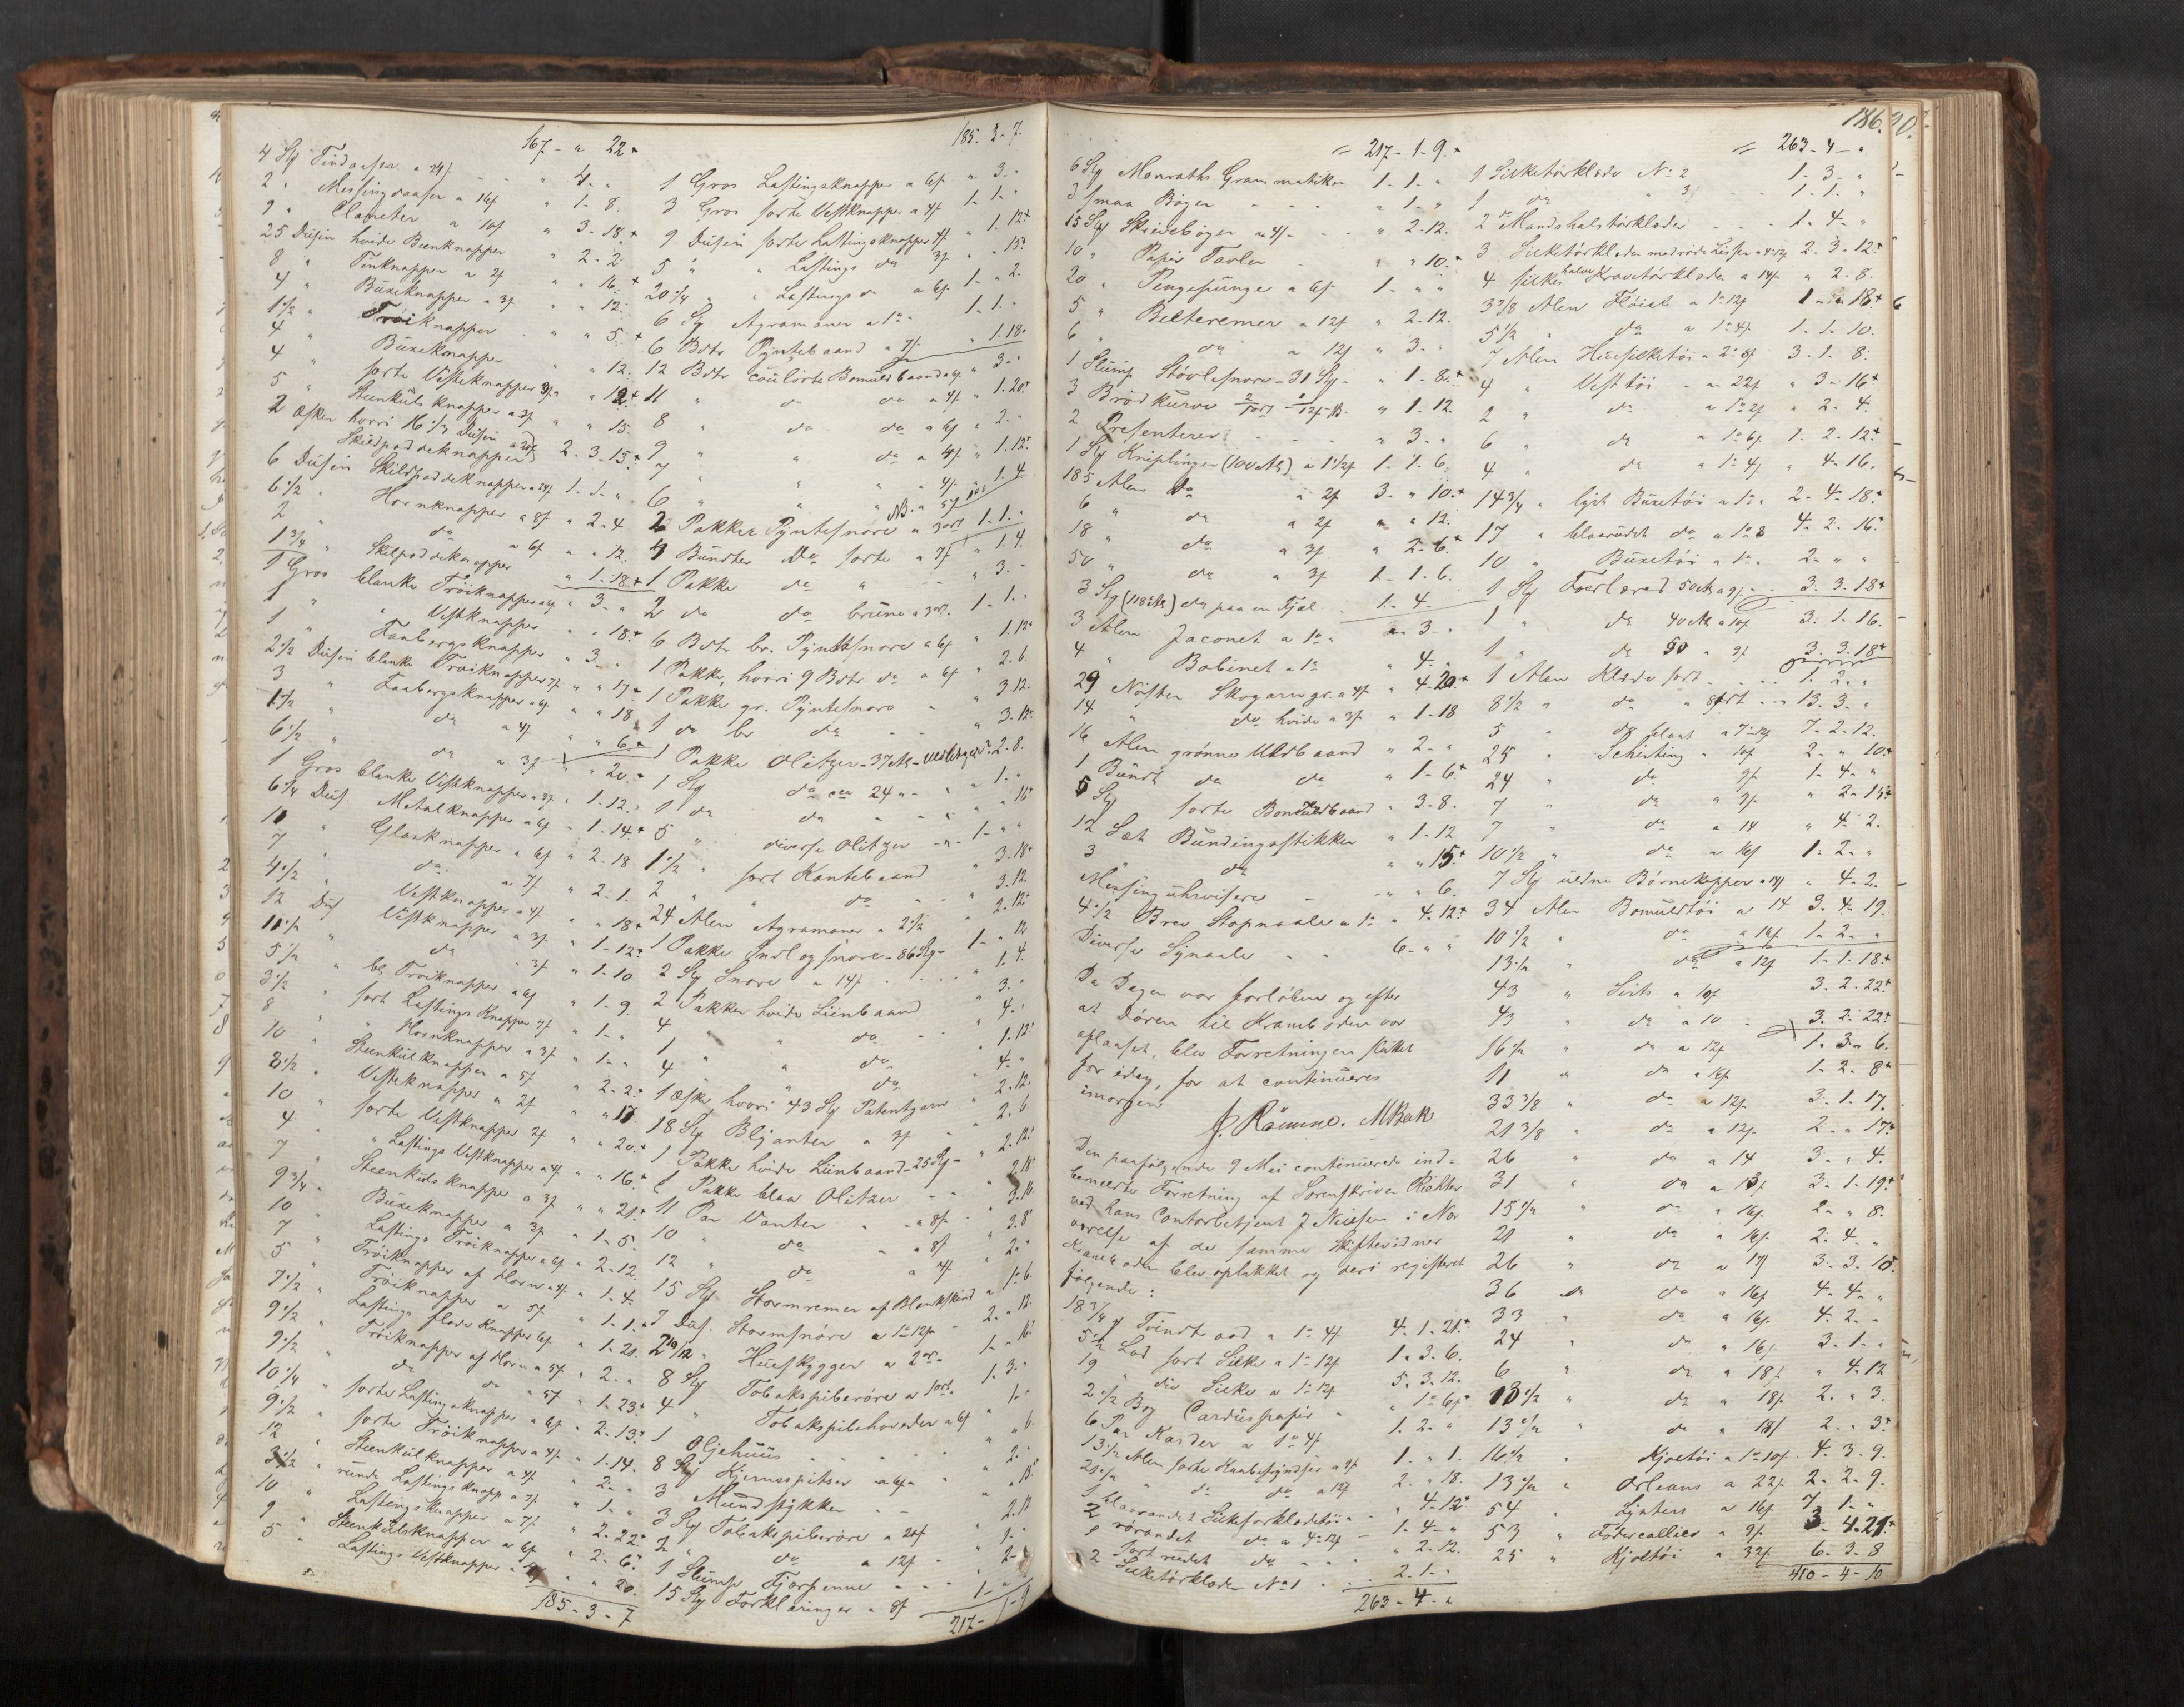 167 - " 22
4 Stk Tindaaser a 24 f " 4 - "
2 " Messingdaaser a 16 f " 1 - 8.
9 " Clameter a 10 f " 3 - 18
25 Dusin hvide Beenknapper " 2 - 2
8 " Tinknapper a 2 f " " 16
4 " Buxeknapper a 3 f " " 12.
1 1/2 " Trøiknapper " " 5
4 " Buxeknapper " " 12.
4 " sorte Vesteknapper 3 f " " 12
5 " Steenkuls knapper a 3 f " " 15.
2 Æsker hvori 16 1/3 Dusin
Skildpaddeknapper 2 - 3 - 15
6 Dusin Skildpaddeknapper a 24 f 1 - 1 - "
6 1/2 " Hornknapper a 8 f " 2 - 4
2 " do a 6 f " " 12.
1 3/4 " Skilpaddeknapper " 1 - 18
1 Gros blanke Trøiknapper " 3 - "
1 " " Vestknapper " " 18
1 " Faabergsknapper " 3 - "
2 1/2 Dusin blanke Trøiknapper 7 f " " 17
3 " Faabergsknapper a 6 f " " 18
1 1/2 " do a 4 f " " 6
6 1/2 " do a 3 f " " 20
1 Gros blanke Vestknapper a 3 f " 1 - 12.
6 1/4 Dus Metalknapper a 6 f " 1 - 14
11 " Glasknapper a 6 f " 2 - 18
7 " do a 7 f " 2 - 1.
4 1/2 " Vestknapper a 4 f " " 18
12 Dus Vestknapper a 3 f " 1 - 12
11 1/2 " do " 3 f " 1 - 10
5 1/2 " bl. Trøiknapper a 6 f " 1 - 9
3 1/2 " sort Lastings Knapper 7 f " 1 - "
8 " " Hornknapper a 3 f " 1 - "
10 " Steenkulknapper a 5 f " 2 - 2
8 1/2 " Vesteknapper a 2 f " " 17
10 " sorte Vestknapper 2 f " " 20
4 " " Lastings Vestknapper a 4 f " " 16
7 " Steenkuls knapper a 3 f " " 21
9 3/4 " Buxeknapper a 3 f " 1 - 5
10 " Lastings Trøiknapper a 6 f " 2 - 12
7 " Trøiknapper af Horn a 4 f " 1 - 4
5 " Trøiknapper a 5 f " 1 - 1
7 1/2 " Lastings flade Knapper 6 f " 1 - 21
9 1/2 " Trøiknapper af Horn a 5 f " 2 - "
9 1/2 " do do a 5 f " 1 - 23
10 1/4 " sorte Lastingsknapper a 6 f " 2 - 13
9 1/2 " sorte Trøiknapper a 4 f " 1 - 14.
12 " Steenkulknapper a 4 f " 2 - "
3 1/2 " runde Lastings Knapp a 7 f " 1 - "
10 " Lastings knapper a 7 f " 2 - 22
9 " Steenkulsknapper a 6 f " 2 - 6
5 " Lastings Vestknapper a 4 f " " 20.
185 - 3 - 7
185. 3 - 7.
1 Gros Lastingsknapper a 6 f " 3 - "
3 Gros sorte Vestknapper a 4 f 1 - 1 - "
9 Dusin sorte Lastingsknapper 4 f " 1. 12
5 " " Lastings do 3 f " " 15
20 1/4 " " Lastings do a 6 f 1 - " 2.
6 Stk Agramaner a 1 o 1 - 1 - "
6 Bdtr Pyntebaand a 7 f " 1. 18
12 Bdtr couløirte Bomuldbaand a 6 f " 3 - "
11 " do do a 4 f " 1. 20
8 " do do a 6 f " 2 - "
9 " " do a 4 f " 1. 12
7 " " " a 4 f " 1. 4
6 " " NB. a 5 f
2 Pakker Pyntesnore a 3 ort 1 - 1 - "
4 Bundter do sorte a 7 f " 1. 4.
1 Pakke do " " 3 - "
2 do do brune a 3 ort 1 - 1 - "
6 Bdtr br. Pyntesnore a 6 f " 1. 12
1 Pakke, hvori 9 Bdtr do a 6 f " 2. 6
1 Pakke gr. Pyntesnore " 3. 12.
1 do br do " 3. 12
1 Pakke Olitzer - 37 Al - 2. 8.
1 Stk do cca 24 " " 1 - "
1 do do " " 16
5 " diverse Olitzer 1 - "
1 1/2 " sort Kantebaand " 3. 18
2 " " do " 3. 12.
24 Alen Agramaner a 2 1/2 2. 12
1 Pakke Indlogsnore - 86 Stk 1 - " 12
2 Stk Snore a 14 f " 1. 4.
2 Pakker hvide Liinbaand " 3 - "
4 " " do " 4 - "
1 " " do " 1. 12
4 " " do " 4 - "
1 Æske hvori 43 Stk Patentgarn " 2. 12.
18 Stk Blyanter a 3 f " 2. 6
1 Pakke hvide Liinbaand - 25 Stk " 2. 12
1 Pakke blaa Olitzer " 2. 18
11 Par Vanter a 8 f 3. 16
10 " do a 8 f 3. 8
12 " do a 4 f 2 - "
15 Stk Stormremer af Blankskind 1. 6.
7 Dus. Stormsnore a 1 o 12 f 2. " 12.
2 10/12 " Hueskygger a 2 ort 1 - " 16
8 Stk Tobakspiberøre a 1 ort 1. 3 - "
4 " Tobakspibehoveder a 6 f " 1 - "
1 Oljehuus " " 6.
8 Stk Hjerusspitser a 6 f " 2 - "
3 Mundstykker " " 18
3 Stk Tobakspiberøre a 20 f " 2. 12
2 " do a 12 f " 1 - "
1 Slumpe Fjærpenne " 2 -
15 Stk Forklaringer a 8 f 1 - "
217 - 1 - 9
186. 20.
217 - 1 - 9.
6 Stk Monraths Grammatiker 1 - 1 - "
3 smaa Bøger " 1 - "
15 Stk Skrivebøger a 4 f " 2 - 12.
10 " Papir Tavler " " 10.
20 " Pengepunge a 6 f 1 - " "
5 " Belteremer a 12 f " 2. 12.
6 " do a 12 f " 3 - "
1 Slump Støvlesnore - 31 Stk " 1 - 8.
3 Brødkurve " 1. 12.
2 Presenteer " 3 - "
1 Stk Kniplinger (100 Al) a 1 1/2 f 1. 1. 6.
185 Alen do a 2 f 3. " 10
6 " do a 2 f " " 12.
18 " do a 3 f " 2 - 6
50 " do a 3 f 1 - 1. 6.
3 Stk (118 Al) do paa en Fjæl 1 - 4 -
3 Alen Jaconet a 1 o " 3 - "
4 " Bobinet a 1 o " 4 - "
29 Nøster Skogarn gr. a 4 f " 4 - 20
14 " do hvide a 3 f " 1 - 18
16 Alen grønne Uldbaand " 2 - "
1 Bundt do do " 1 - 6
5 Stk sorte Bomuldbaand " 3 - 8.
12 Sæt Bundingsstikker " 1 - 12
3 do " " 15
Messinguhrvisere " " 6.
4 1/2 Brev Stopnaale a 1 o " 4. 12
Diverse Synaale 6 - " "
Da Dagen var forløben og efter
at Døren til Kramboden var
aflaaset, blev Forretningen sluttet
for idag, for at continueres
imorgen
J. Rømmo. M Bak
Den paafølgende 9 Mai continuerede ind-
bemeldte Forretning af Sorenskriver Richter
ved hans Contorbetjent J Nielsen i Nær
værelse af de samme Skiftevidner
Kramboden blev oplukket og deri registeret
følgende:
18 3/4 Triendtraad a 1 o 4 f 4. 1. 21
5 1/2 Lod sort Silke a 1 o 12 f 1. 3. 6.
19 " div Silke a 1 o 12 f 5. 3. 12.
2 1/2 Bog Carduspapir " 1 o 6 f
6 Par Karder a 1 o 4 f 1. 2 - "
13 1/2 Alen sorte Kaabefryndser a 9 f 1. " 1.
21 1/2 " do do a 12 f 2. " 18.
1 blaarandet Silketørklædetøi " 4 - 12
2 rørandet do a 4 o 12 f 1 - 4 - "
1 sort randet do " 2. 12.
2 Silketørklæder No 1 2. 1 - "
263 - 4 - "
263 - 4 - "
1 Silketørklæde No 2 1 - 3 - "
1 do " 3 1 - 1 - "
2 Mandshalstørklæder 1 - 4 - "
3 Silketørklæder med røde Lisser a 4 o 12 f 2. 3. 12
4 halve silke Kravetørklæde a 14 f " 2. 8.
3 3/8 Alen Fløiel a 1 o 12 f 1 - " 18
5 1/2 " do a 1 o 4 f 1. 1. 10.
7 Alen Huesilketøi a 2 o 8 f 3. 1. 8.
4 " Vesttøi a 22 f " 3 - 16
2 " do a 1 o 2 f " 2. 4.
6 " do a 1 o 6 f 1. 2. 12
4 " do a 1 o 4 f " 4. 16.
14 3/4 " lyst Buxetøi a 1 o 2 - 4 - 18
17 " blaarudet do a 1 o 8 4. 2. 16
10 " Buxetøi a 1 o 2 - " "
1 Stk Foerlærred 50 Al a 9 f 3. 3. 18
1 " do 40 Al a 10 f 3. 1. 16.
1 " do 50 " 9 f 3. 3. 18
1 Alen Klæde sort 1. 2 - "
8 1/2 " do " 8 ort 13. 3 - "
5 " do blaat a 7 o 12 f 7 - 2 - 12.
25 " Schirting " 10 f 2 - " 10
24 " do 9 f 1 - 4 - "
7 " do " 9 f " 2 - 15
7 " do a 14 " 4. 2.
10 1/2 " do a 16 f 1. 2 - "
7 Stk uldne Børnekapper a 14 f " 4. 2
34 Alen Bomuldtøi a 14 3. 4. 19.
10 1/2 " do a 16 f 1 - 2 - "
13 1/2 " do a 12 f 1 - 1. 18
43 " Sirts a 10 f 3. 2. 22
43 " do a 10 3. 2. 22
16 1/2 " do a 12 f 1. 3. 6.
11 " do a 16 f 1. 2. 8
33 3/8 " do a 12 f 3. 1. 17.
21 3/8 " do a 12 f 2. " 17
26 " do a 14 3. " 4.
31 " do a 13 f 3. 1. 19
15 1/2 " do " 16 f 2. " 8.
21 " do a 16 f 2. 4 - "
26 " do a 17 f 3. 3. 10.
36 do do " 16 f 4. 4 - "
33 " do a 16 f 4. 2 - "
24 " do " 16 f 3. 1 - "
6 " do a 18 f " 4. 12
13 1/2 " do a 18 f 2. " 3.
13 1/2 " do a 18 f 2. " 3
16 1/2 " Kjoletøi a 1 o 10 f 4. 3. 9.
13 1/2 " Orleans a 22 f 2. 2. 9.
54 " Lysters a 16 f 7. 1 - "
53 " Fodercallico " 9 f 3 - 4. 21
25 " Kjoletøi a 32 f 6. 3. 8
410 - 4 - 10